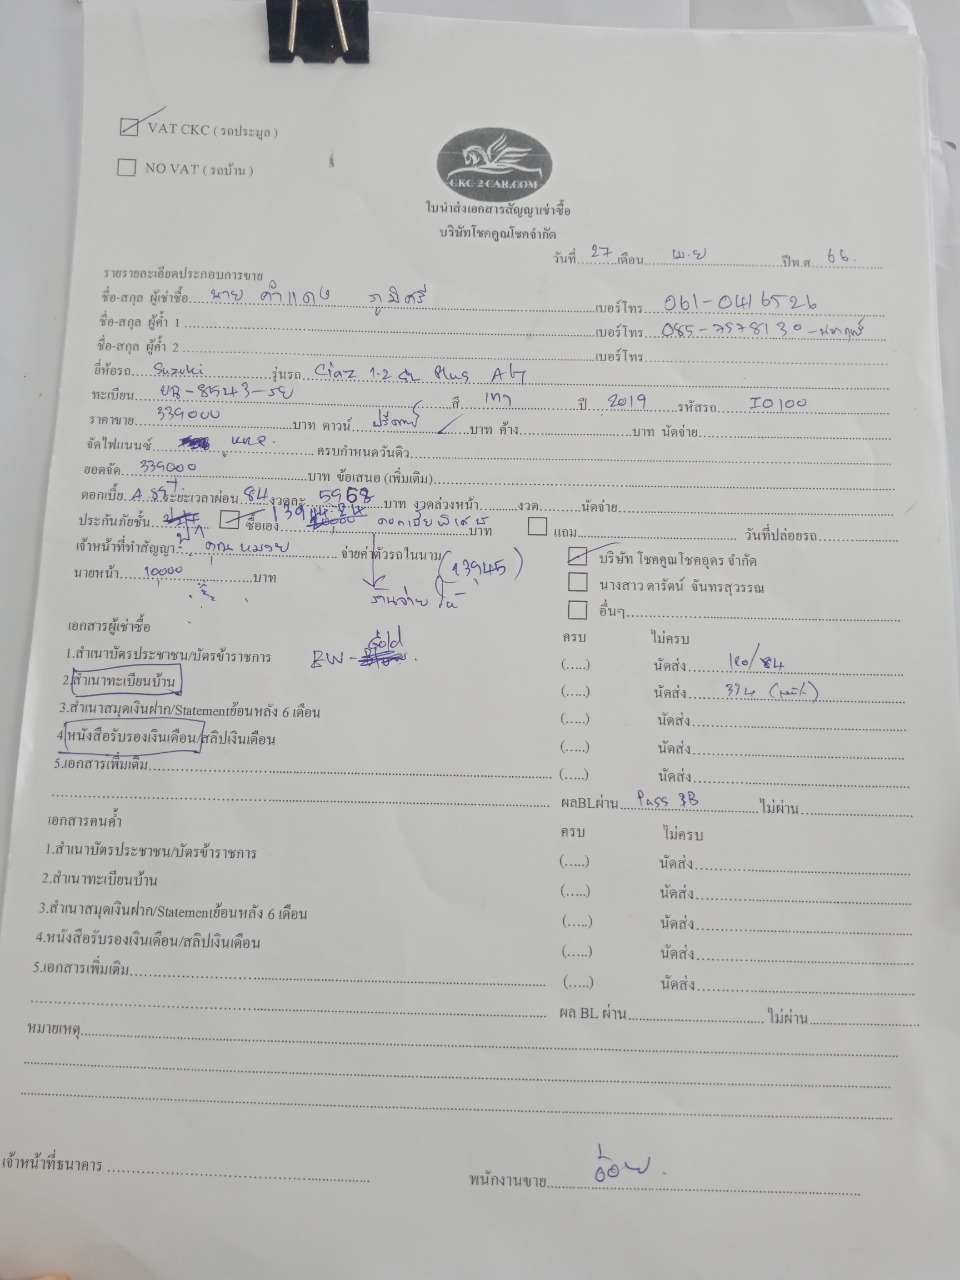 VAT CKC ( รถประมูล )
NO VAT ( รถบ้าน )
CKC-2-CAR.COM
ใบนำส่งเอกสารสัญญาเช่าซื้อ
บริษัทโชคคูณโชคจำกัด
วันที่ 27 เดือน เม.ย ปีพ.ศ 66.
รายรายละเอียดประกอบการขาย
ชื่อ-สกุล ผู้เช่าซื้อ นาย คำแดง ภูมิศรี เบอร์โทร 061-0416526
ชื่อ-สกุล ผู้ค้ำ 1 เบอร์โทร 085-7578130
ชื่อ-สกุล ผู้ค้ำ 2 เบอร์โทร
ยี่ห้อรถ Suzuki รุ่นรถ Ciaz 1.2 Plus
ทะเบียน 8543-รย สี เทา ปี 2019 รหัสรถ IO100
ราคาขาย 339000 บาท ดาวน์ ฟรีดาวน์ บาท ค้าง บาท นัดจ่าย
จัดไฟแนนซ์ ครบกำหนดวันดิว
ยอดจัด 339000 บาท ข้อเสนอ (เพิ่มเติม)
ดอกเบี้ย ระยะเวลาผ่อน 84 งวดละ 5968 บาท งวดล่วงหน้า งวด นัดจ่าย
ประกันภัยชั้น ซื้อเอง ดอกเบี้ยพิเศษ บาท แถม วันที่ปล่อยรถ
เจ้าหน้าที่ทำสัญญา จ่ายค่าตัวรถในนาม (13945) บริษัท โชคคูณโชคอุดร จำกัด
นายหน้า 10000 บาท ร้านจ่าย ให้ นางสาว ดารัตน์ จันทรสุวรรณ
อื่นๆ
เอกสารผู้เช่าซื้อ ครบ ไม่ครบ
1.สำเนาบัตรประชาชน/บัตรข้าราชการ BW - Gold (.....) นัดส่ง 120/84
2.สำเนาทะเบียนบ้าน (.....) นัดส่ง 334
3.สำเนาสมุดเงินฝาก/Statementย้อนหลัง 6 เดือน (.....) นัดส่ง
4.หนังสือรับรองเงินเดือน/สลิปเงินเดือน (.....) นัดส่ง
5.เอกสารเพิ่มเติม (.....) นัดส่ง
ผลBLผ่าน Pass 3B ไม่ผ่าน
เอกสารคนค้ำ ครบ ไม่ครบ
1.สำเนาบัตรประชาชน/บัตรข้าราชการ (.....) นัดส่ง
2.สำเนาทะเบียนบ้าน (.....) นัดส่ง
3.สำเนาสมุดเงินฝาก/Statementย้อนหลัง 6 เดือน (.....) นัดส่ง
4.หนังสือรับรองเงินเดือน/สลิปเงินเดือน (.....) นัดส่ง
5.เอกสารเพิ่มเติม (.....) นัดส่ง
ผล BL ผ่าน ไม่ผ่าน
หมายเหตุ
เจ้าหน้าที่ธนาคาร พนักงานขาย อ้อย.